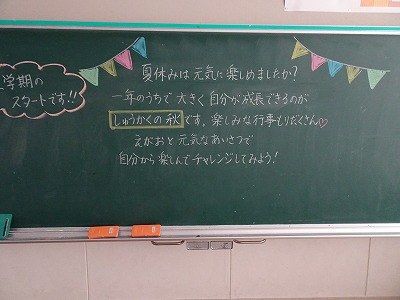 学期の
スタートです!!
夏休みは元気に楽しめましたか?
一年のうちで大きく自分が成長できるのが
しゅうかくの秋です。楽しみな行事もりだくさん♡
えがおと元気なあいさつで
自分から楽しんでチャレンジしてみよう!